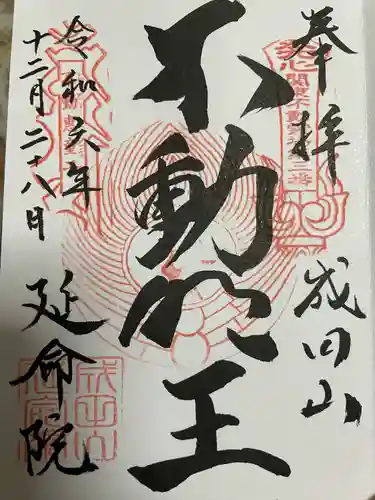 奉拝
成田山
不動明王
令和六年
十二月二十八日
延命院
成田山